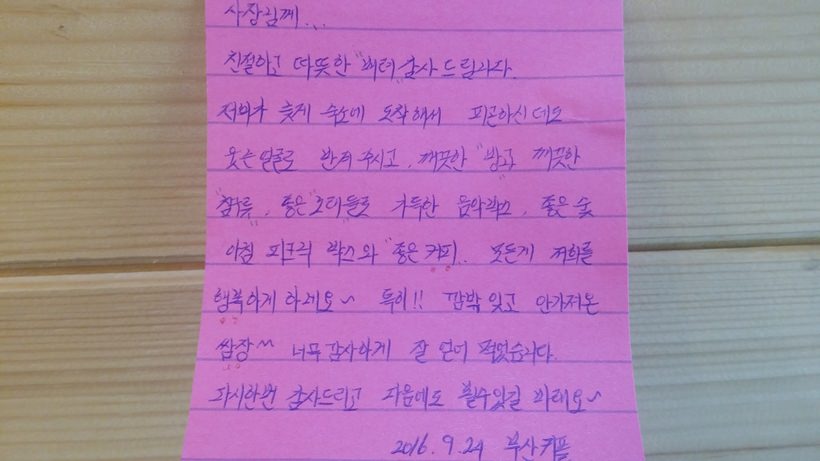 사장님께...
친절하고 따뜻한 "배려" 감사드립니다.
저희가 늦게 숙소에 도착해서 피곤하신데도
웃는 얼굴로 반겨 주시고, 깨끗한 "방과 깨끗한
"침구류", 좋은 "오디들로 가득한 음악박스, 좋은 숲
아침 피크닉 박스와 "좋은 커피.. 모든게 저희를
행복하게 하네요~ 특히!! 깜박 잊고 안가져온
쌈장^^ 너무 감사하게 잘 얻어 먹었습니다.
다시한번 감사드리고 다음에도 뵐수있길 바래요~
2016. 9. 24 부산커플